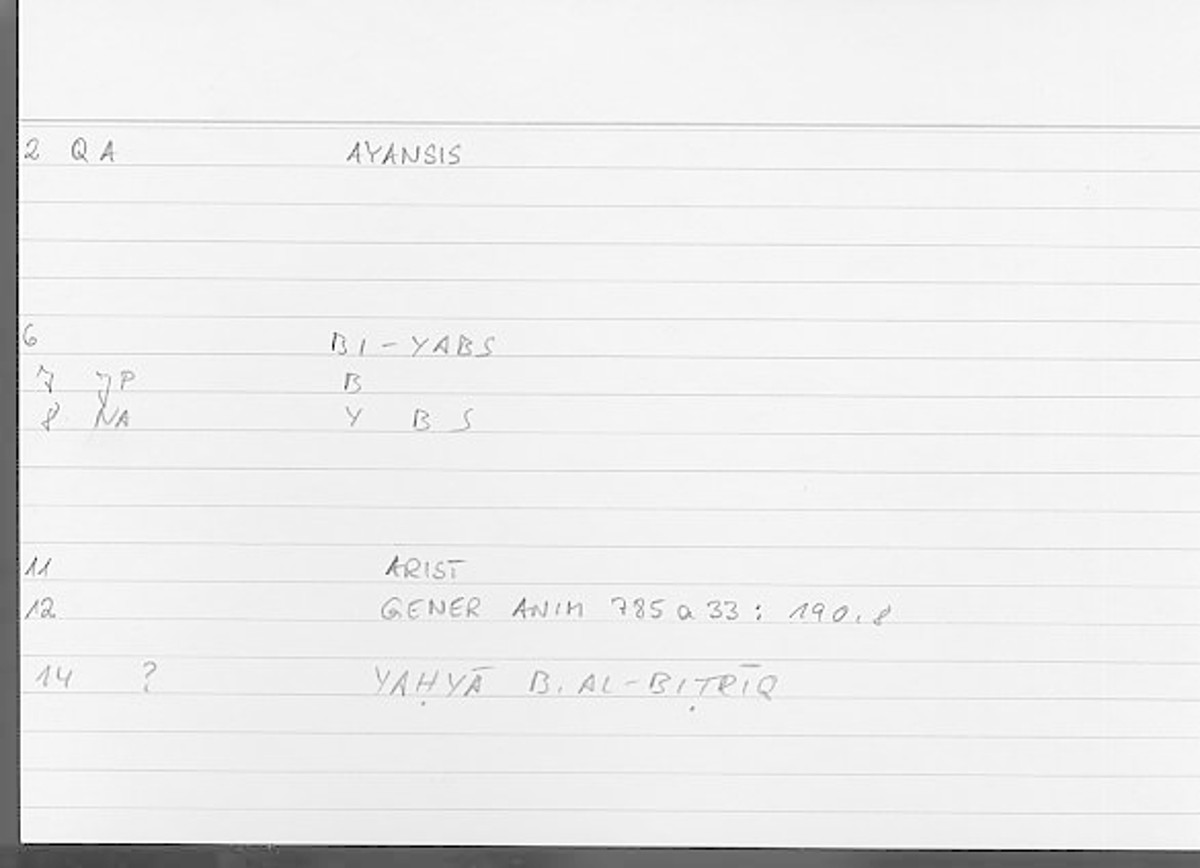 2 QA AYANSIS
6 BI-YABS
7 JP B
8 NA Y B S
11 ARIST
12 GENER ANIM 785 a 33 : 190.8
14 ? YAḤYĀ B. AL-BIṬRĪQ